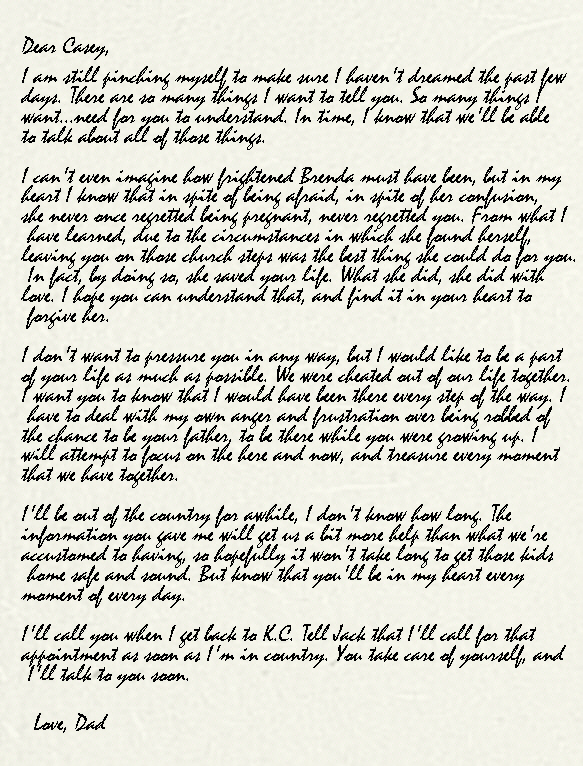 Dear Casey,
I am still pinching myself, to make sure I haven't dreamed the past few
days. There are so many things I want to tell you. So many things I
want...need for you to understand. In time, I know that we'll be able
to talk about all of those things.
I can't even imagine how frightened Brenda must have been, but in my
heart I know that in spite of being afraid, in spite of her confusion,
she never once regretted being pregnant, never regretted you. From what I
have learned, due to the circumstances in which she found herself,
leaving you on those church steps was the best thing she could do for you.
In fact, by doing so, she saved your life. What she did, she did with
love. I hope you can understand that, and find it in your heart to
forgive her.
I don't want to pressure you in any way, but I would like to be a part
of your life as much as possible. We were cheated out of our life together.
I want you to know that I would have been there every step of the way. I
have to deal with my own anger and frustration over being robbed of
the chance to be your father, to be there while you were growing up. I
will attempt to focus on the here and now, and treasure every moment
that we have together.
I'll be out of the country for awhile, I don't know how long. The
information you gave me will get us a bit more help than what we're
accustomed to having, so hopefully it won't take long to get those kids
home safe and sound. But know that you'll be in my heart every
moment of every day.
I'll call you when I get back to K.C. Tell Jack that I'll call for that
appointment as soon as I'm in country. You take care of yourself, and
I'll talk to you soon.
Love, Dad